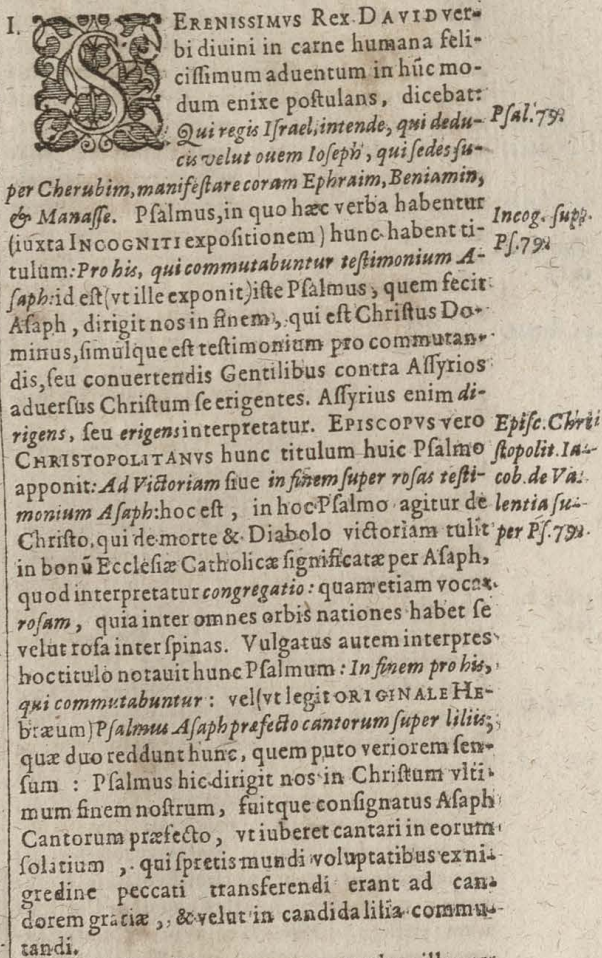 I. SERENISSIMVS Rex DAVID ver-
bi diuini in carne humana feli-
cissimum aduentum in hũc mo-
dum enixe postulans, dicebat:
Qui regis Israel, intende, qui dedu-
cis velut ouem Ioseph, qui sedes su-
per Cherubim, manifestare coram Ephraim, Beniamin,
& Manasse. Psalmus, in quo hæc verba habentur
(iuxta INCOGNITI expositionem) hunc habent ti-
tulum: Pro his, qui commutabuntur testimonium A-
saph: id est (vt ille exponit) iste Psalmus, quem fecit
Asaph, dirigit nos in finem, qui est Christus Do-
minus, simulque est testimonium pro commutan-
dis, seu conuertendis Gentilibus contra Assyrios
aduersus Christum se erigentes. Assyrius enim di-
rigens, seu erigens interpretatur. EPISCOPVS vero
CHRISTOPOLITANVS hunc titulum huic Psalmo
apponit: Ad Victoriam siue in finem super rosas testi-
monium Asaph: hoc est, in hoc Psalmo agitur de
Christo, qui de morte & Diabolo victoriam tulit
in bonũ Ecclesiæ Catholicæ significatæ per Asaph,
quod interpretatur congregatio: quam etiam vocat
rosam, quia inter omnes orbis nationes habet se
velut rosa inter spinas. Vulgatus autem interpres
hoc titulo notauit hunc Psalmum: In finem pro his,
qui commutabuntur: vel (vt legit ORIGINALE HE-
bræum) Psalmus Asaph præfecto cantorum super liliis;
quæ duo reddunt hunc, quem puto veriorem sen-
sum: Psalmus hic dirigit nos in Christum vlti-
mum finem nostrum, fuitque consignatus Asaph
Cantorum præfecto, vt iuberet cantari in eorum
solatium, qui spretis mundi voluptatibus ex ni-
gredine peccati transferendi erant ad can-
dorem gratiæ, & velut in candida lilia commu-
tandi.
Psal. 79.
Incog. sup.
Ps. 79.
Episc. Christi
stopolit. Ia-
cob. de Va-
lentia su-
per Ps. 79.